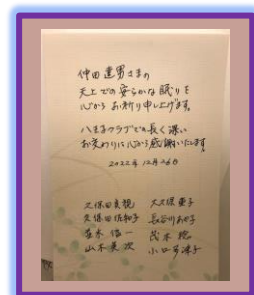 仲田達男さまの
天上での安らかな眠りを
心からお祈り申し上げます。
八王子クラブでの長く深い
お交わりに心から感謝いたします。
2022年12月26日
久保田貞視 大久保重子
久保田佐和子 長谷川あや子
並木信一 茂木稔
山本英次 小口多津子